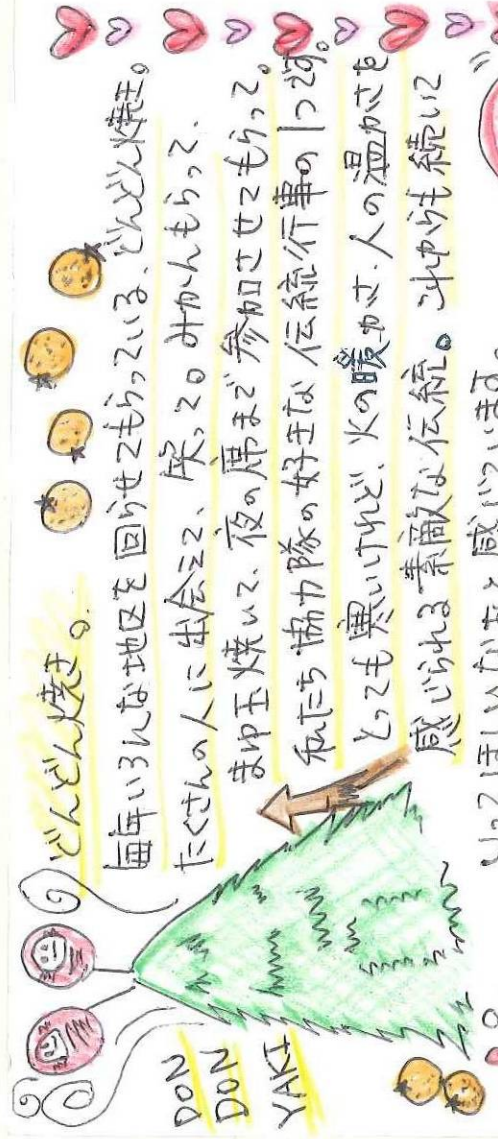 どんどん焼き。
毎年いろんな地区を回らせてもらっている、どんどん焼き。
たくさんの人に出会えて、戻って。みかんもらって、
まゆ玉焼いて、夜の席まで参加させてもらって。
私たち協力隊の好きな伝統行事の1つです。
とっても寒いけれど、火の暖かさ、人の温かさを
感じられる素敵な伝統。これからも続いて
いってほしいなあと感じています。
DON
DON
YAKI